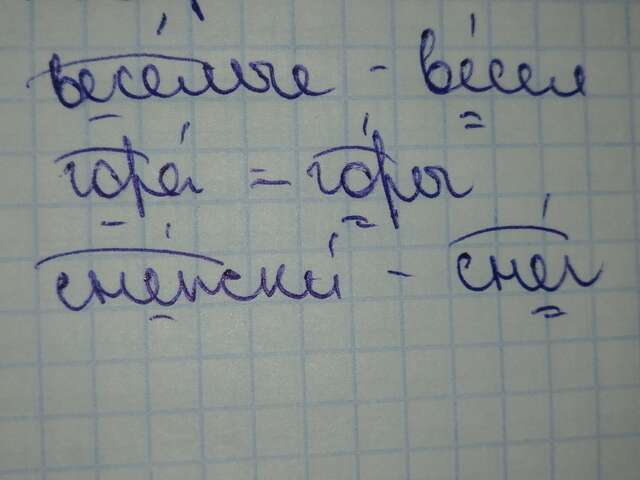 весёлые - ве́сел
гора́ - го́ры
снежки́ - снег